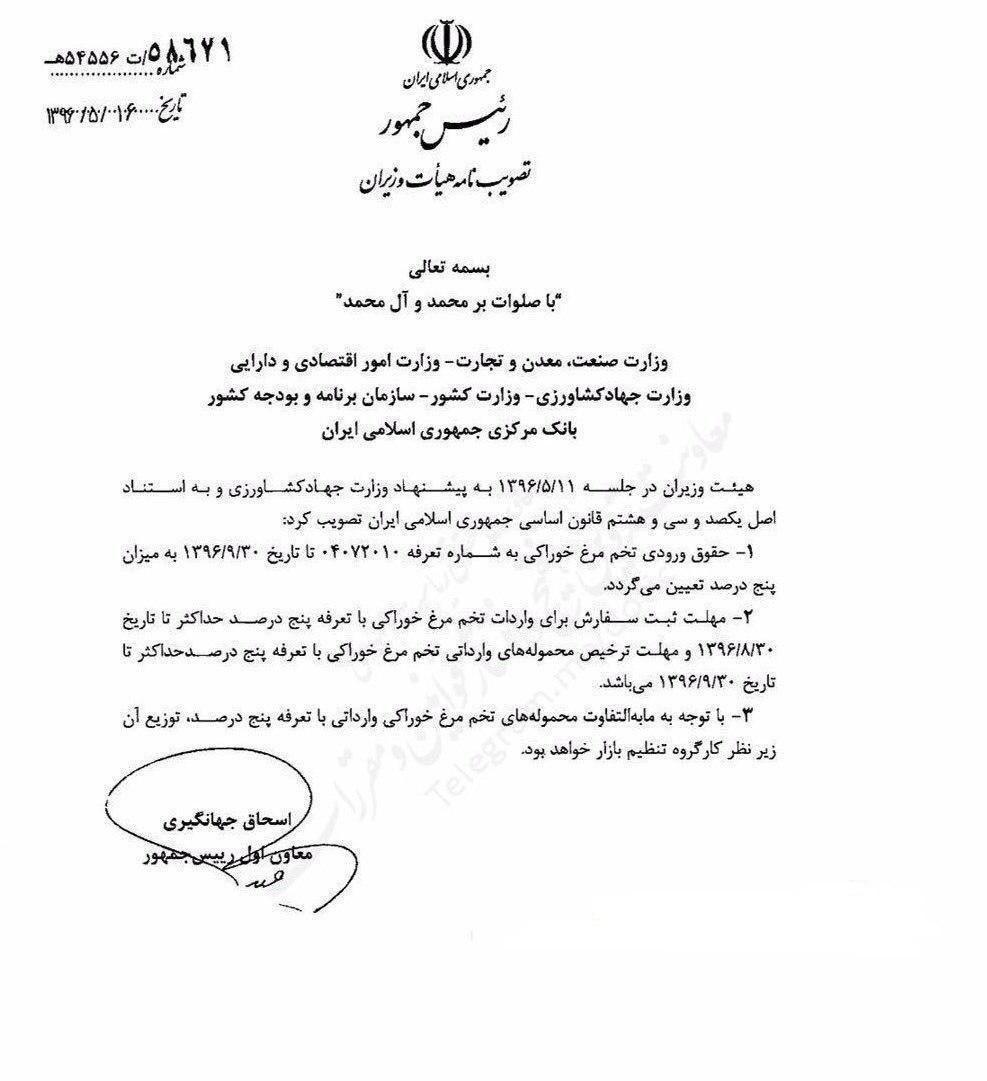 جمهوری اسلامی ایران
رئیس جمهور
تصویب نامه هیأت وزیران
شماره ۵۸۶۷۱/ت ۵۴۵۵۶هـ
تاریخ ۱۳۹۶/۵/۱۶
بسمه تعالی
"با صلوات بر محمد و آل محمد"
وزارت صنعت، معدن و تجارت- وزارت امور اقتصادی و دارایی
وزارت جهادکشاورزی- وزارت کشور- سازمان برنامه و بودجه کشور
بانک مرکزی جمهوری اسلامی ایران
هیئت وزیران در جلسه ۱۳۹۶/۵/۱۱ به پیشنهاد وزارت جهادکشاورزی و به استناد
اصل یکصد و سی و هشتم قانون اساسی جمهوری اسلامی ایران تصویب کرد:
۱- حقوق ورودی تخم مرغ خوراکی به شماره تعرفه ۰۴۰۷۲۰۱۰ تا تاریخ ۱۳۹۶/۹/۳۰ به میزان
پنج درصد تعیین می‌گردد.
۲- مهلت ثبت سفارش برای واردات تخم مرغ خوراکی با تعرفه پنج درصد حداکثر تا تاریخ
۱۳۹۶/۸/۳۰ و مهلت ترخیص محموله‌های وارداتی تخم مرغ خوراکی با تعرفه پنج درصدحداکثر تا
تاریخ ۱۳۹۶/۹/۳۰ می‌باشد.
۳- با توجه به مابه‌التفاوت محموله‌های تخم مرغ خوراکی وارداتی با تعرفه پنج درصد، توزیع آن
زیر نظر کارگروه تنظیم بازار خواهد بود.
اسحاق جهانگیری
معاون اول رییس‌جمهور